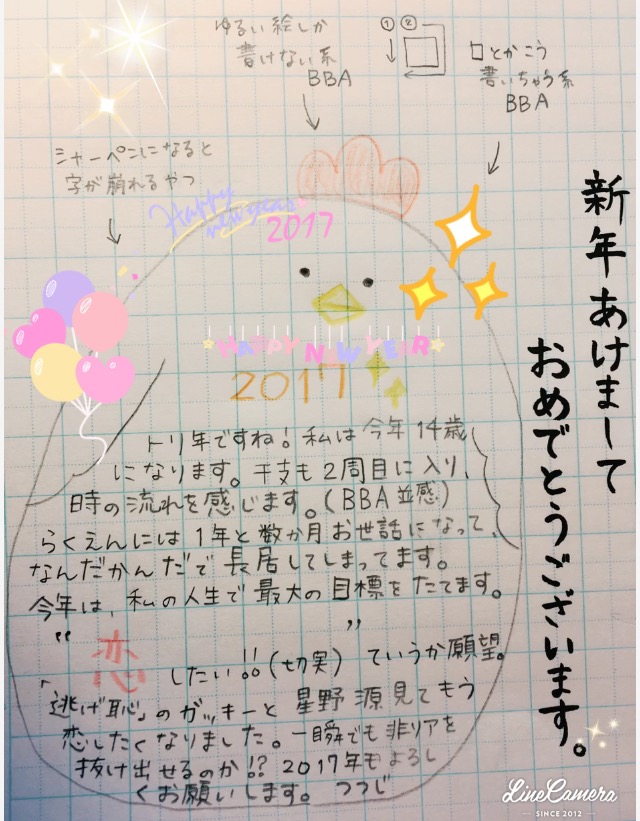 ゆるい絵しか
書けない系
BBA
① ②
口とかこう
書いちゃう系
BBA
シャーペンになると
字が崩れるやつ
Happy
new year
2017
新年あけまして
おめでとうございます。
HAPPY NEW YEAR
2017
トリ年ですね!私は今年14歳
になります。干支も2周目に入り、
時の流れを感じます。(BBA並感)
らくえんには1年と数か月お世話になって、
なんだかんだで長居してしまってます。
今年は、私の人生で最大の目標をたてます。
“ ”
恋したい!!(切実) ていうか願望。
「逃げ恥」のガッキーと星野源見てもう
恋したくなりました。一瞬でも非リアを
抜け出せるのか!?2017年もよろし
くお願いします。つつじ
LINE Camera
SINCE 2012